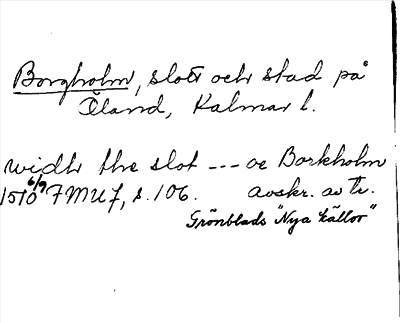 Borgholm, slott och stad på
Öland, Kalmar l.
widh the slot --- oc Borkholm
1510 6/9 FMU 7, s. 106. avskr. av tr.
Grönblads "Nya källor"